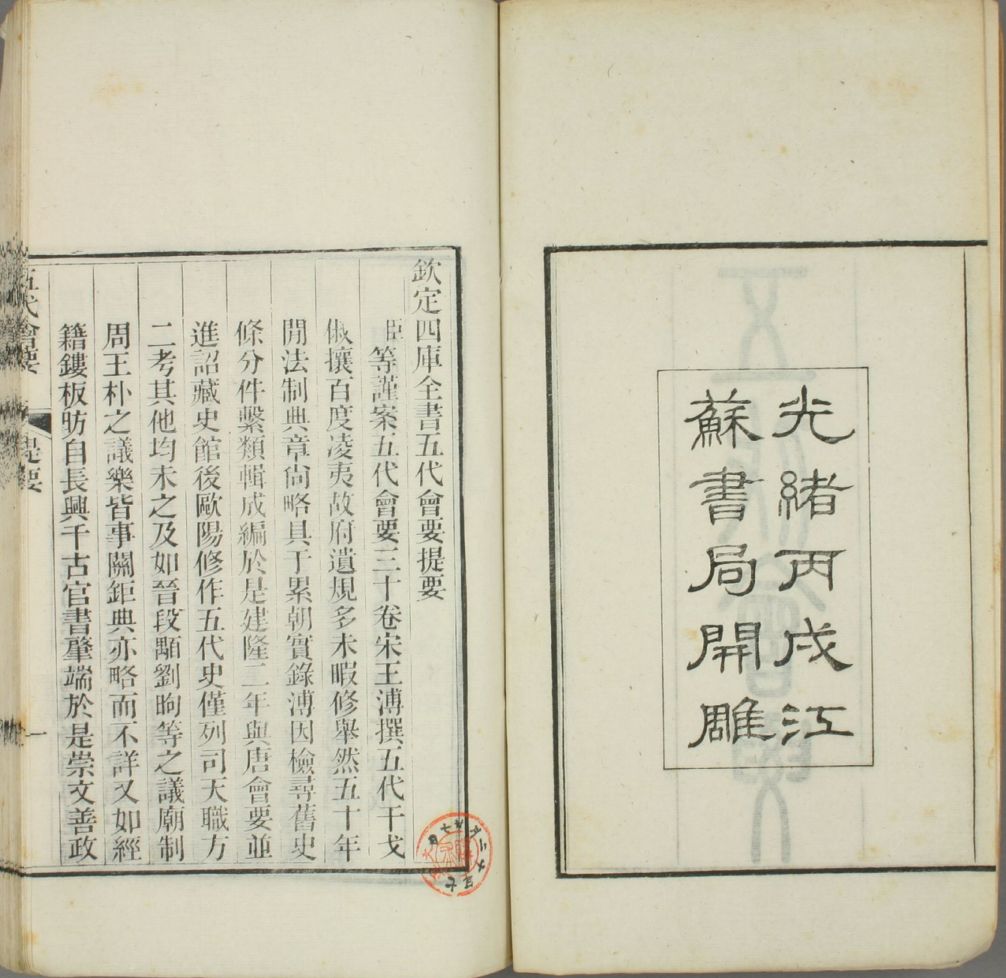 光緒丙戌江
蘇書局開雕
欽定四庫全書五代會要提要
臣等謹案五代會要三十卷宋王溥撰五代干戈
俶擾百度凌夷故府遺規多未暇修舉然五十年
閒法制典章尙略具于累朝實錄溥因檢尋舊史
條分件繫類輯成編於是建隆二年與唐會要並
進詔藏史館後歐陽修作五代史僅列司天職方
二考其他均未之及如晉段顒劉昫等之議廟制
周王朴之議樂皆事關鉅典亦略而不詳又如經
籍鏤板昉自長興千古官書肇端於是崇文善政
五代會要
提要
一